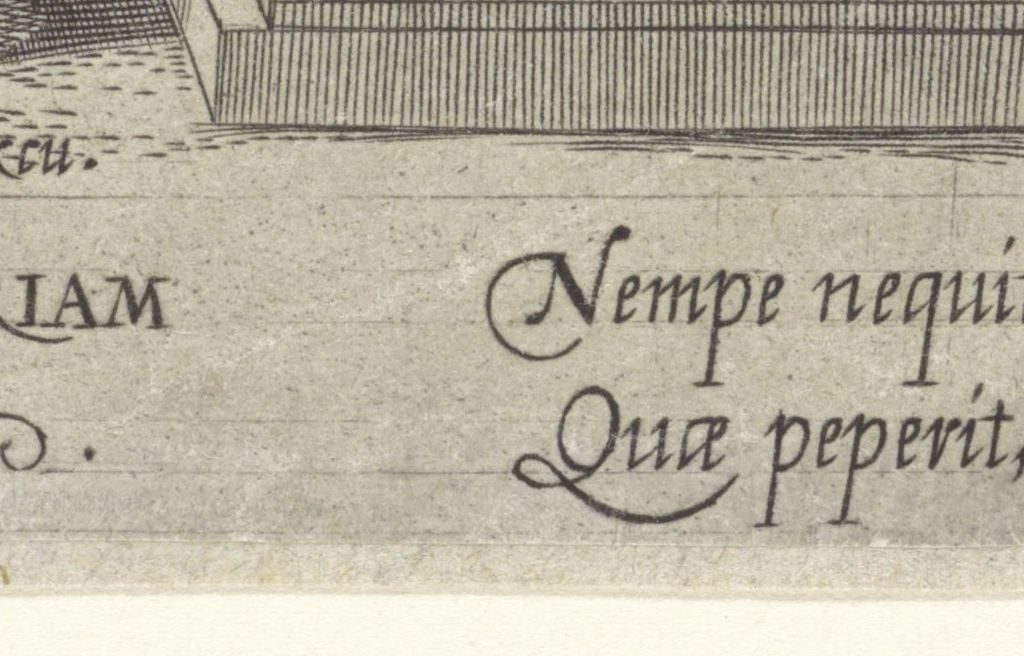 excu.
RIAM Nempe nequi
. Quæ peperit,